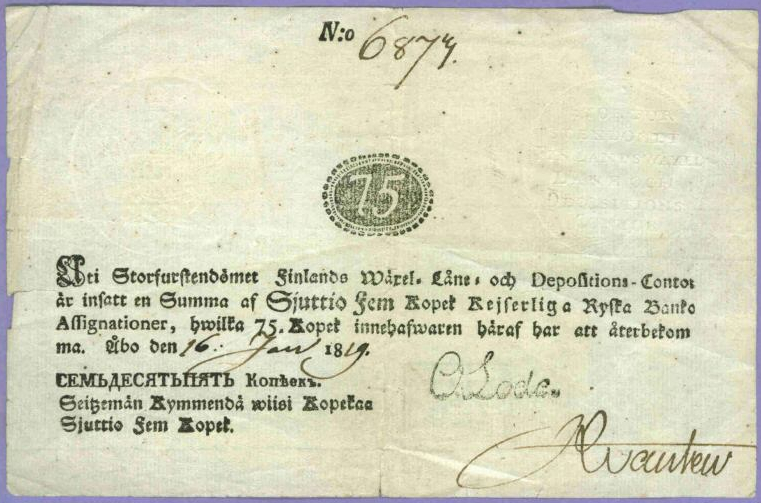 N:o 6877.
75
Uti Storfurstendömet Finlands Wäxel- Låne- och Depositions-Contor
är insatt en Summa af Sjuttio Fem Kopek Kejserliga Ryska Banko
Assignationer, hwilka 75. Kopek innehafwaren häraf har att återbekom
ma. Åbo den 16. Jan 1819.
СЕМЬДЕСЯТЬПЯТЬ Копѣекъ.
Seitzemän Kymmendä wiisi Kopekaa
Sjuttio Fem Kopek.